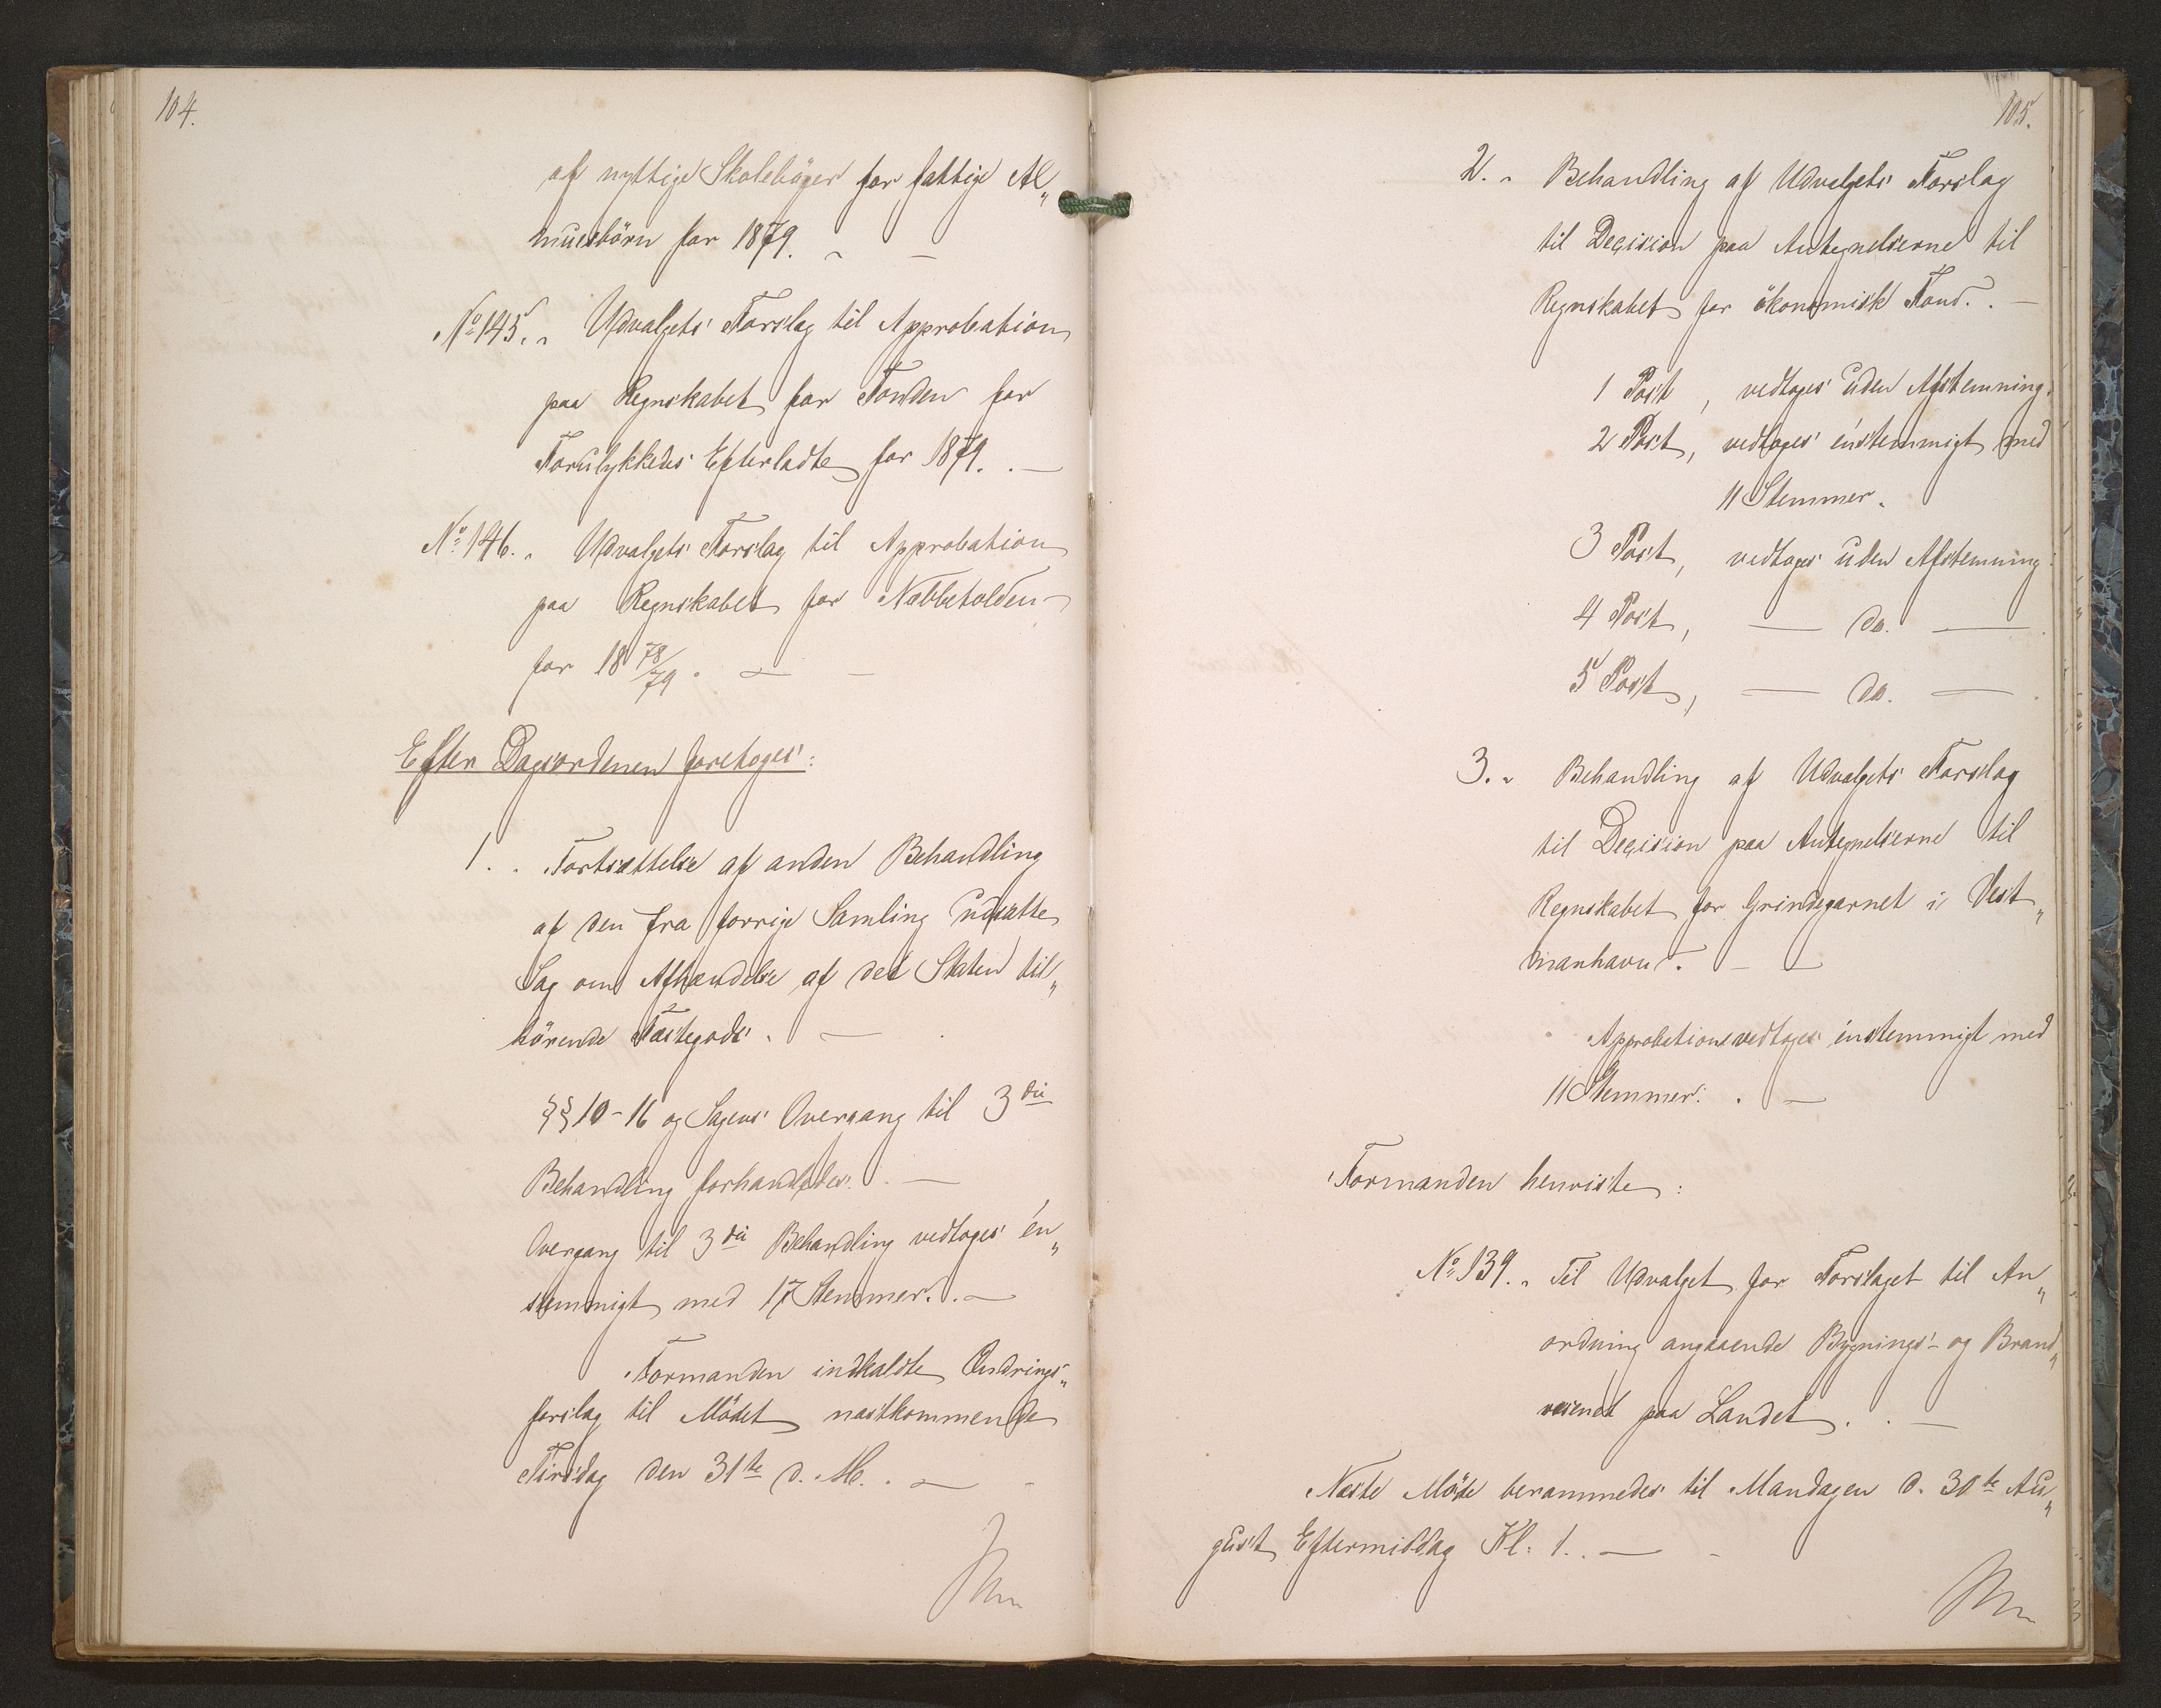 104.
af nyttige Skolebøger for fattige Al„
muesbörn for 1879. „ —
No 145. „ Udvalgets Forslag til Approbation
paa Regnskabet for Fonden for
Forulykkedes Efterladte for 1879. . —
No 146. „ Udvalgets Forslag til Approbation
paa Regnskabet for Næbbetolden
for 18 78/79 . — —
Efter Dagsordenen foretoges:
1. . Fortsættelse af anden Behandling
af den fra forrige Samling udsatte
Sag om Afhændelse af det Staten til„
hörende Fæstegods . —
§§ 10-16 og Sagens Overgang til 3die
Behandling forhandledes. . —
Overgang til 3die Behandling vedtoges én„
stemmigt med 17 Stemmer. . —
Formanden indkaldte Ændrings„
forslag til Mödet næstkommende
Tirsdag den 31te d. M. . —
105.
2. „ Behandling af Udvalgets Forslag
til Decision paa Antegnelserne til
Regnskabet for ökonomisk Fond. . —
1 Post , vedtoges uden Afstemning.
2 Post, vedtoges énstemmigt med
11 Stemmer.
3 Post, vedtoges uden Afstemning.
4 Post, — do. — .
5 Post, — do. — .
3. „ Behandling af Udvalgets Forslag
til Decision paa Antegnelserne til
Regnskabet for Grindegarnet i Vest„
manhavn. — —
Approbation vedtoges énstemmigt med
11 Stemmer. . —
Formanden henviste:
No 139. „ Til Udvalget for Forslaget til An„
ordning angaaende Bygnings- og Brand„
væsenet paa Landet. . —
Næste Möde berammedes til Mandagen d. 30te Au„
gust Eftermiddag Kl. 1. . —